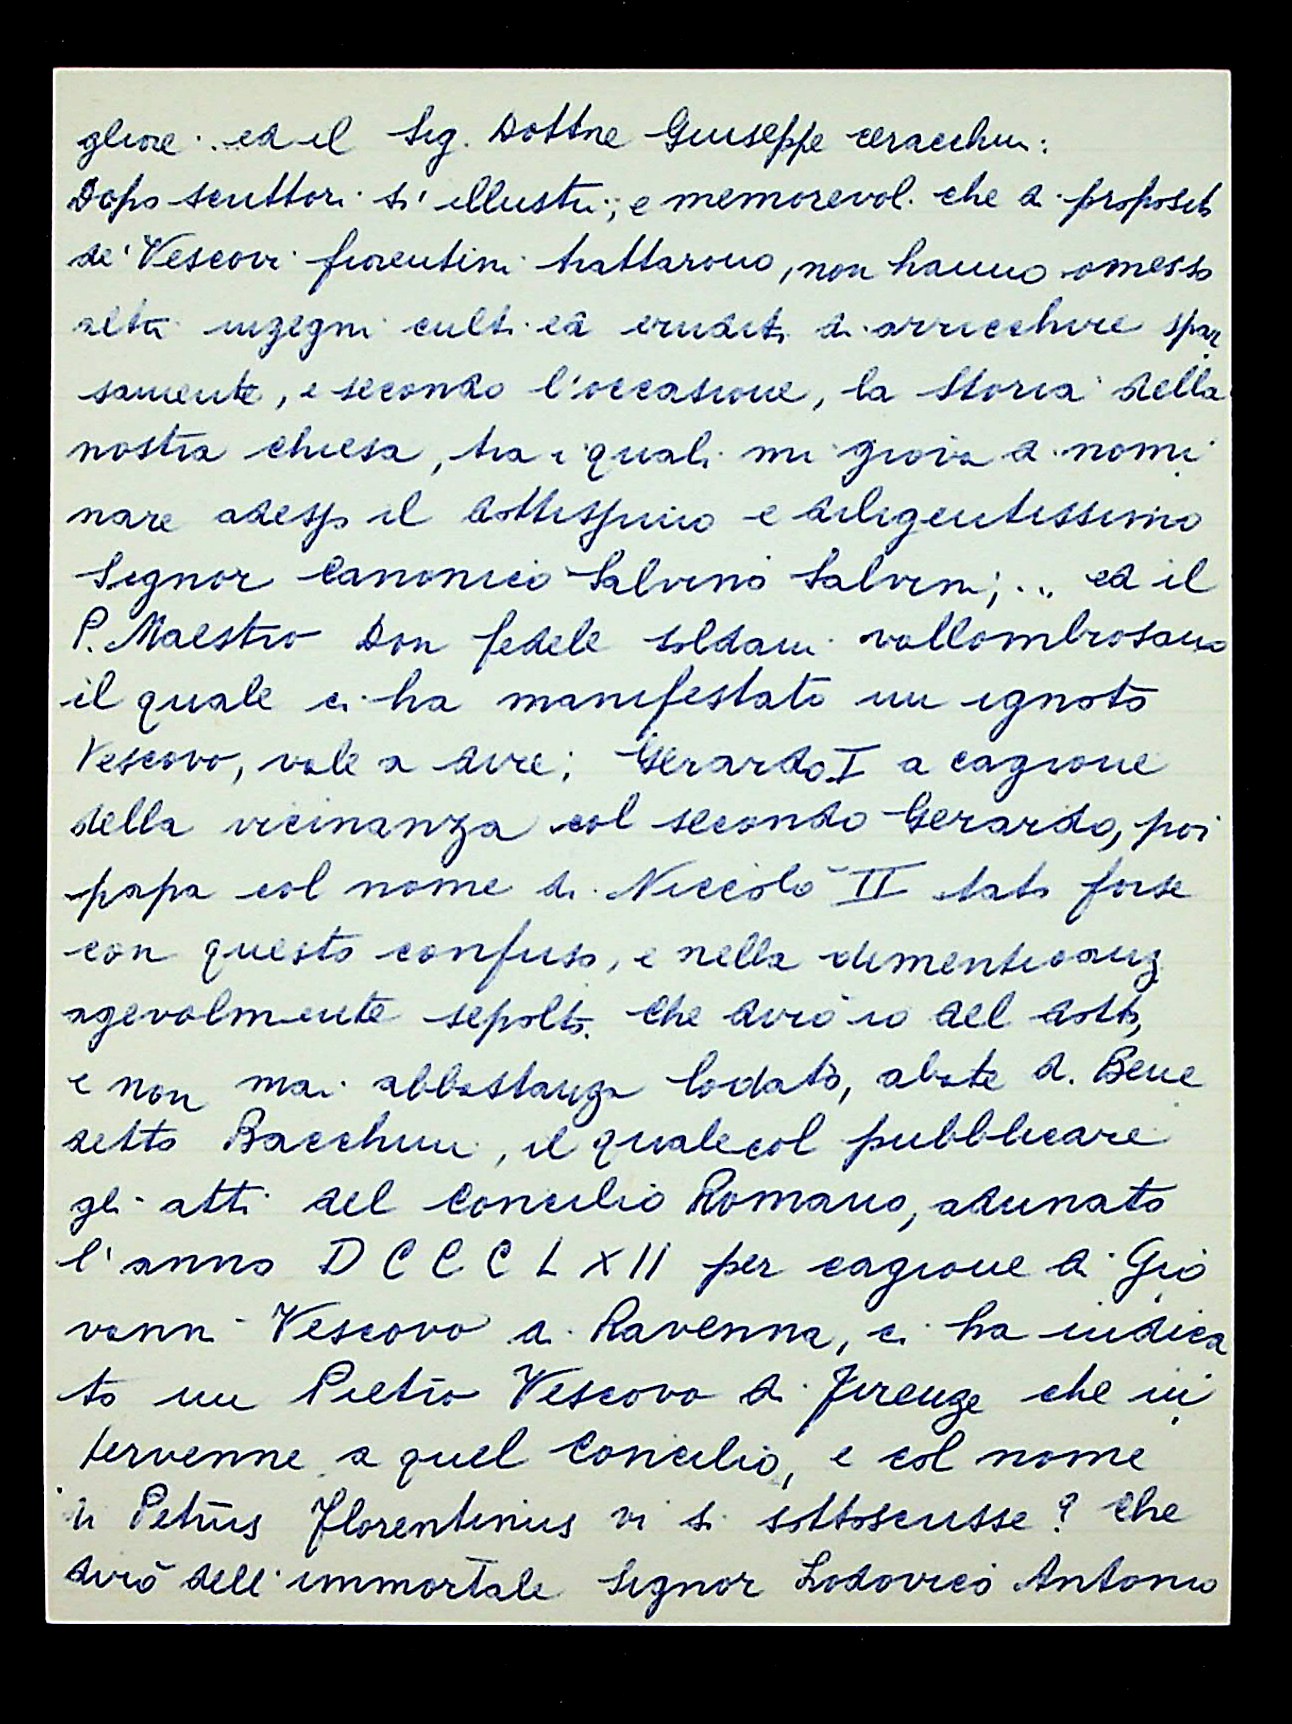 gliore . ed il Sig. Dottre Giuseppe Ceracchini:
Dopo scrittori sì illustri; e memorevoli che a proposito
de' Vescovi fiorentini trattarono, non hanno omesso
altri ingegni culti ed eruditi di arricchire spar
samente, e secondo l'occasione, la Storia della
nostra chiesa, tra i quali mi giova di nomi
nare adesso il dottissimo e diligentissimo
Signor Canonico Salvino Salvini; ... ed il
P. Maestro Don fedele Soldani vallombrosano
il quale ci ha manifestato un ignoto
Vescovo, vale a dire; Gerardo I a cagione
della vicinanza col secondo Gerardo, poi
papa col nome di Niccolò II stato forse
con questo confuso, e nella dimenticanz
agevolmente sepolto. Che dirò io del dotto,
e non mai abbastanza lodato, abate D. Bene
detto Bacchini, il quale col pubblicare
gli atti del Concilio Romano, adunato
l'anno DCCCLXII per cagione di Gio
vanni Vescovo di Ravenna, ci ha indica
to un Pietro Vescovo di Firenze che in
tervenne a quel Concilio, e col nome
di Petrus Florentinus vi si sottoscrisse? Che
dirò dell'immortale Signor Lodovico Antonio